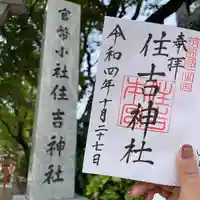 官幣小社住吉神社
奉拝
住吉神社
令和四年十月二十七日